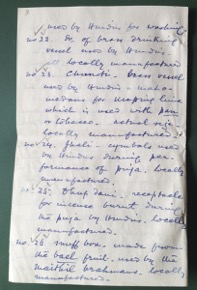 used by Hindus for washing
no 22. do of brass drinking
vessel used by Hindus
locally manufactured
no 23. Chunoti. brass vessel
used by Hindus & maho-
medans for keeping lime
which is used with pan
or tobacco. actual size
locally manufactured.
no 24. Jhali. cymbals used
by Hindus during per-
formance of puja. locally
manufactured.
no. 25. Dhup dani. receptacle
for incense burnt during
the puja by Hindus. locally
manufactured.
no. 26. snuff box. made from
the bael fruit. used by the
maithil brahmans. locally
manufactured.